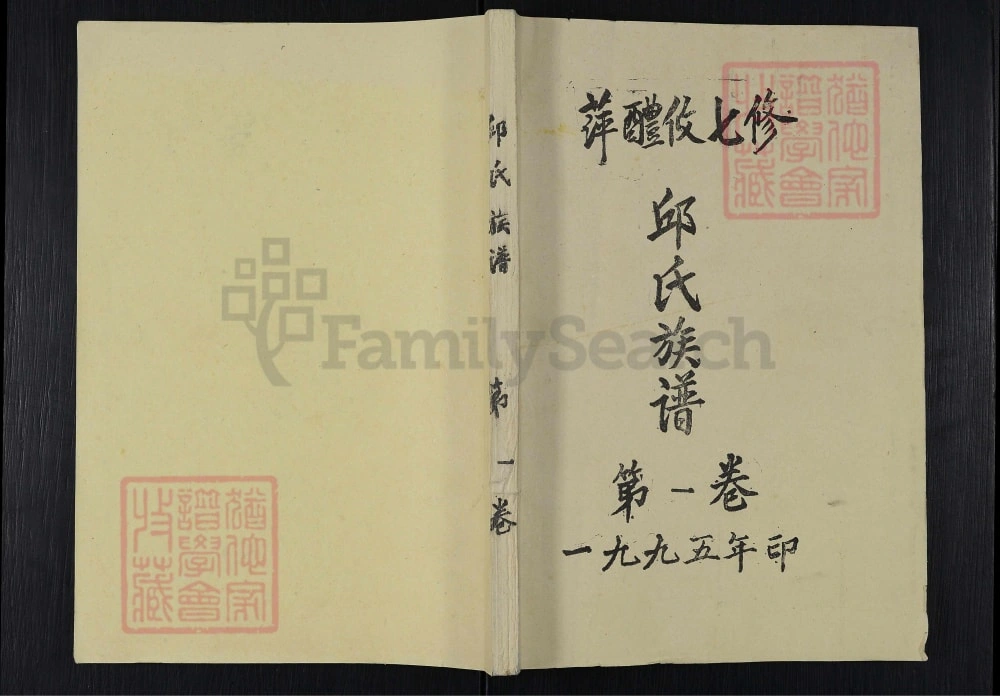 萍醴攸七修
邱氏族谱
第一卷
一九九五年印
邱氏族谱 第一卷
猶他家
譜學會
收藏
猶他家
譜學會
收藏
FamilySearch